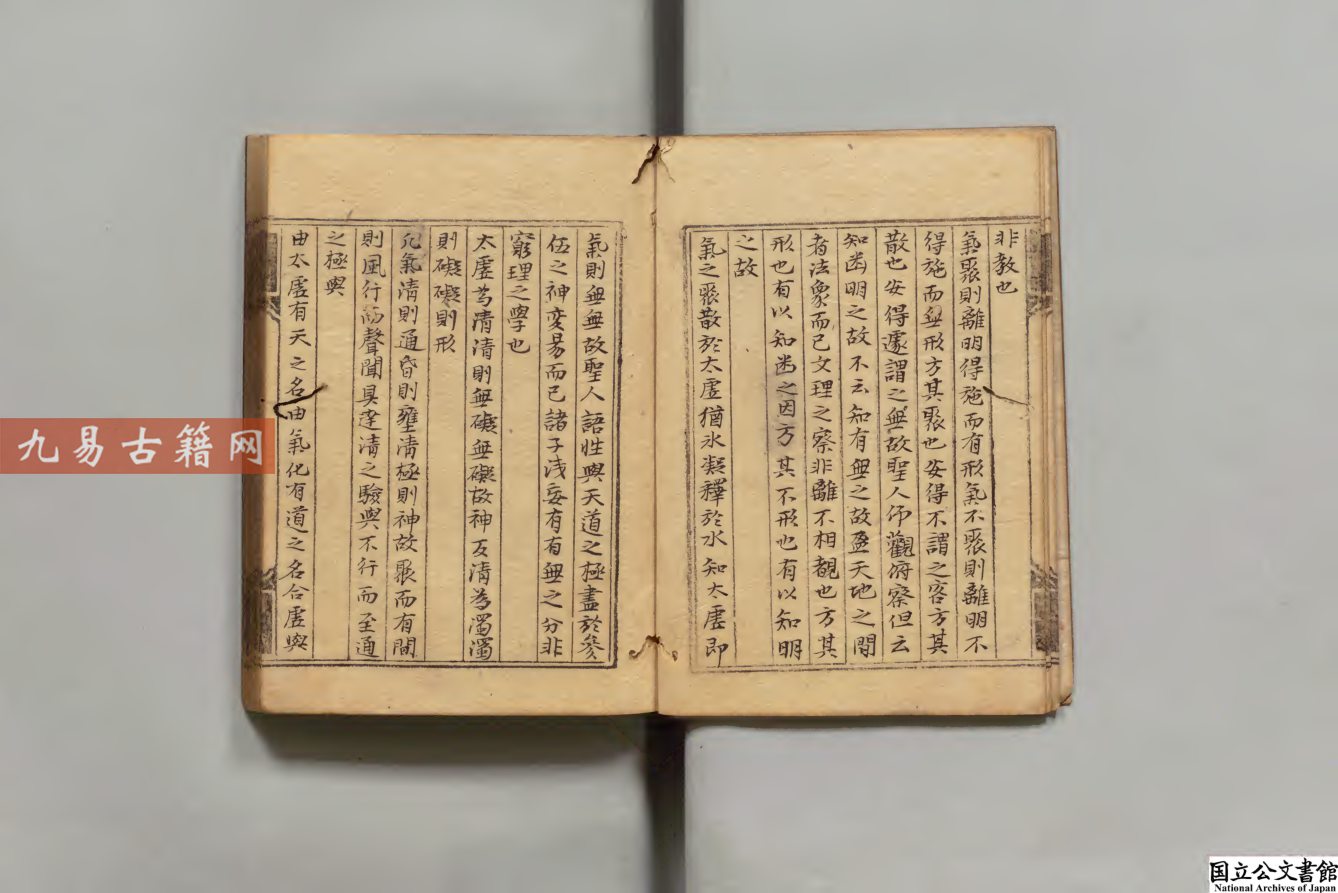 非教也
氣聚則離明得施而有形氣不聚則離明不
得施而無形方其聚也安得不謂之客方其
散也安得遽謂之無故聖人仰觀俯察但云
知幽明之故不云知有無之故盈天地之間
者法象而已文理之察非離不相覩也方其
形也有以知幽之因方其不形也有以知明
之故
氣之聚散於太虛猶氷凝釋於水知太虛即
氣則無無故聖人語性與天道之極盡於參
伍之神變易而已諸子淺妄有有無之分非
窮理之學也
太虛為清清則無礙無礙故神反清為濁濁
則礙礙則形
凡氣清則通昏則壅清極則神故聚而有間
則風行而聲聞具達清之驗與不行而至通
之極與
由太虛有天之名由氣化有道之名合虛與
九易古籍网
国立公文書館
National Archives of Japan